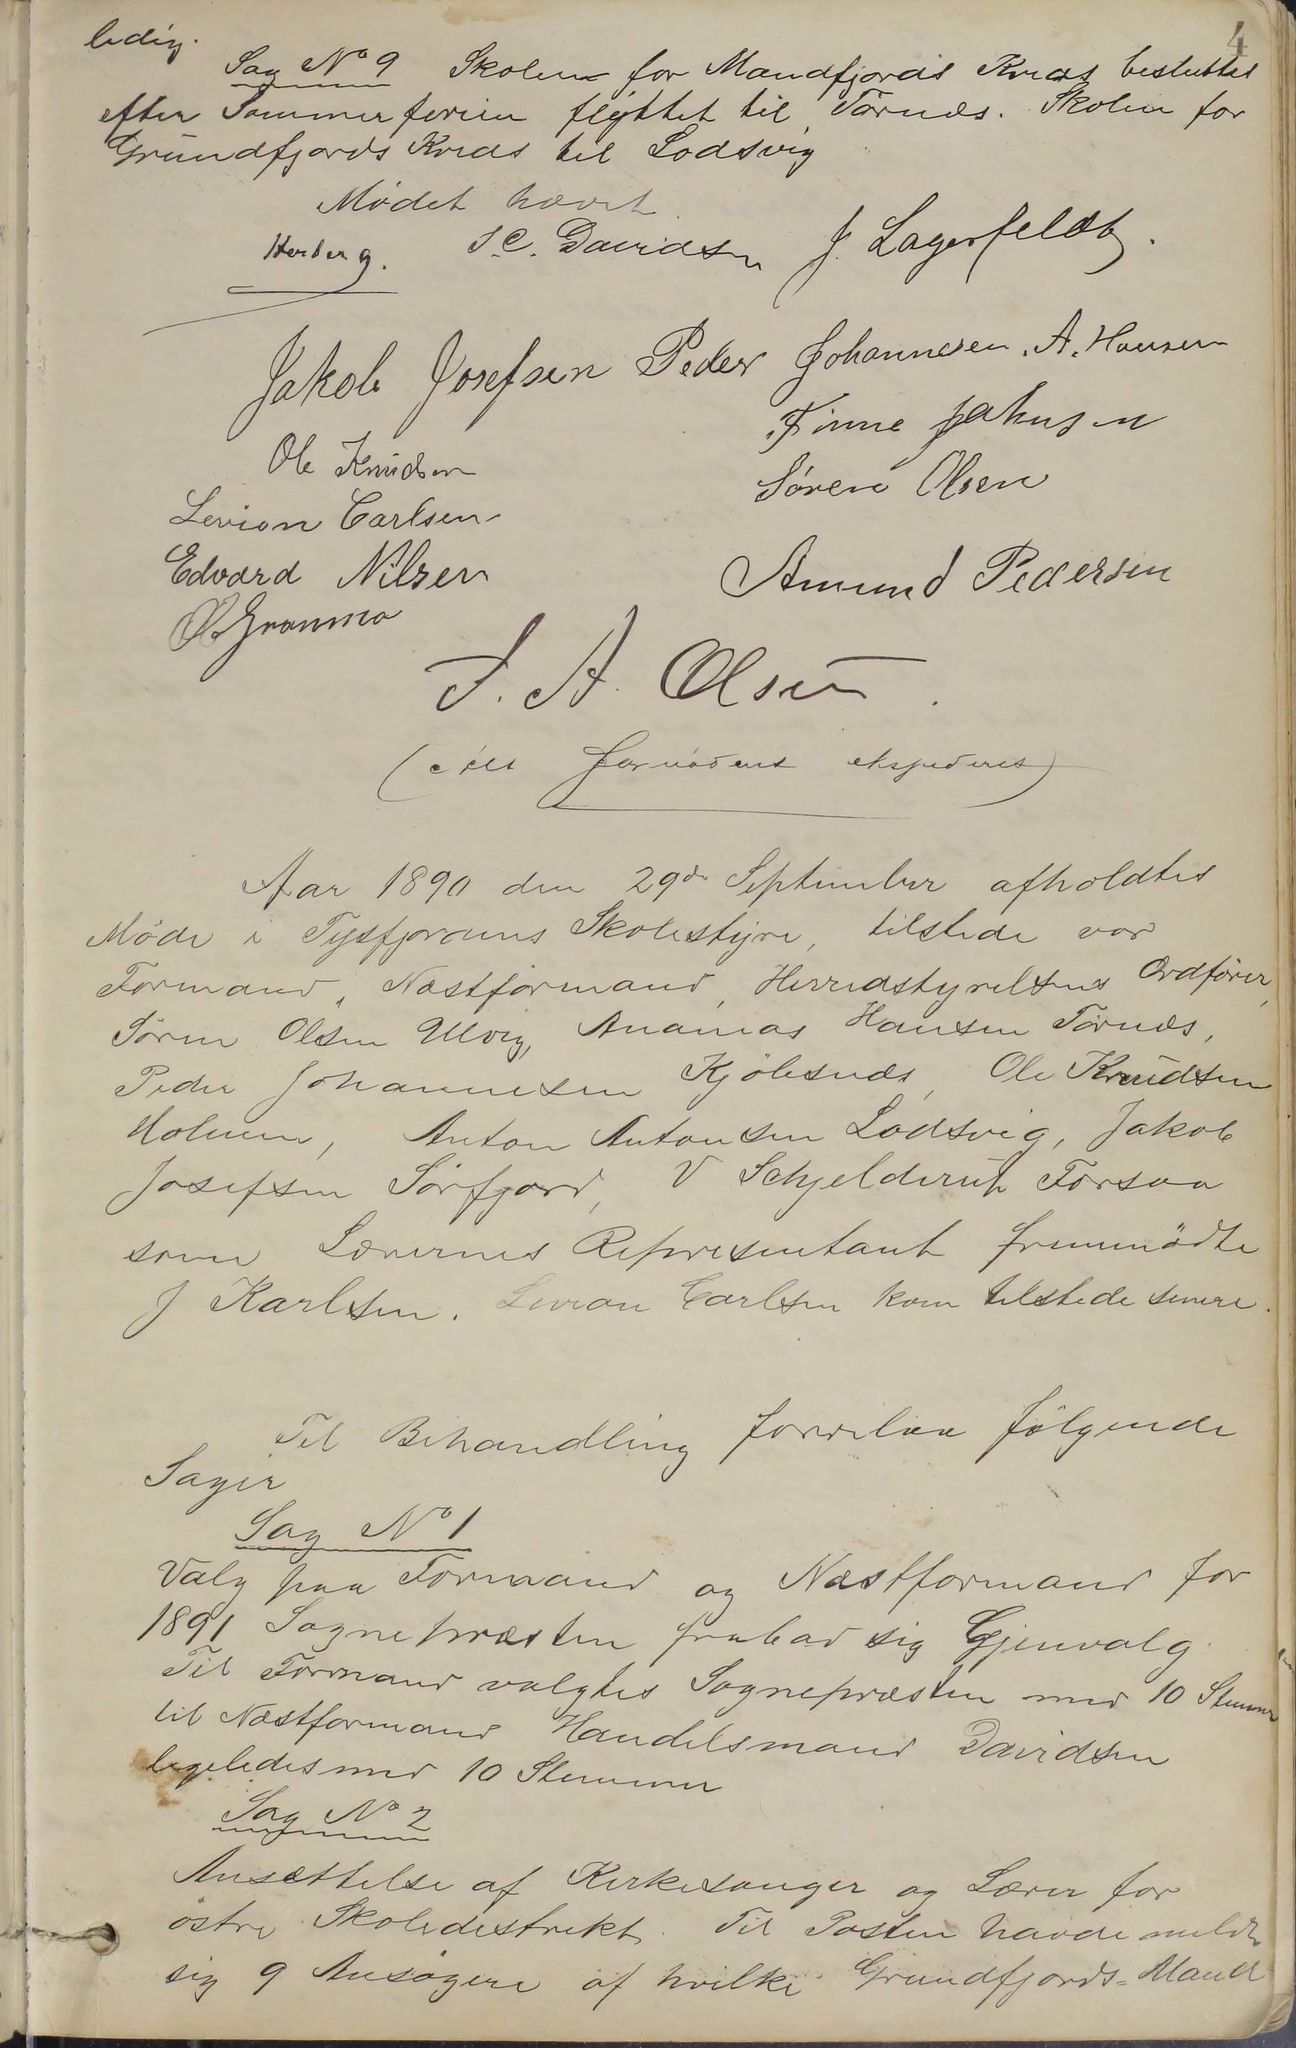 4
ledig.
Sag No 9 Skolen for Mandfjords Kreds besluttet
efter Sommerferien flyttet til Tørnæs. Skolen for
Grundfjords Kreds til Lodsvig
Mødet hævet
Herberg. S.C. Davidsen J. Lagerfeldt.
Jakob Josefsen Peder Johannesen. A. Hansen
Finne Jakobsen
Ole Knudsen
Søren Olsen
Levion Carlsen
Edvard Nilsen
Amund Pedersen
O. Grønmo
J. A. Olsen.
( fornødent ekspederet)
Aar 1890 den 29de September afholdtes
Møde i Tysfjordens Skolestyre, tilstede var
Formand, Næstformand, Herredstyrelsens Ordfører,
Søren Olsen Ulvig, Ananias Hansen Tørnæs,
Peder Johannesen Kjøbsnæs, Ole Knudsen
Holmen, Anton Antonsen Lodsvig, Jakob
Josefsen Sørfjord, V Schjelderup Forsaa
som Lærernes Representant fremmødte
J Karlsen. Levion Carlsen kom tilstede senere.
Til Behandling forelaa følgende
Sager
Sag No 1
Valg paa Formand og Næstformand for
1891 Sognepræsten frabad sig Gjenvalg.
Til Formand valgtes Sognepræsten med 10 Stemmer
til Næstformand Handelsmand Davidsen
ligeledes med 10 Stemmer
Sag No 2
Ansættelse af Kirkesanger og Lærer for
østre Skoledistrikt. Til Posten havde meldt
sig 9 Ansøgere af hvilke Grundfjords-Mand